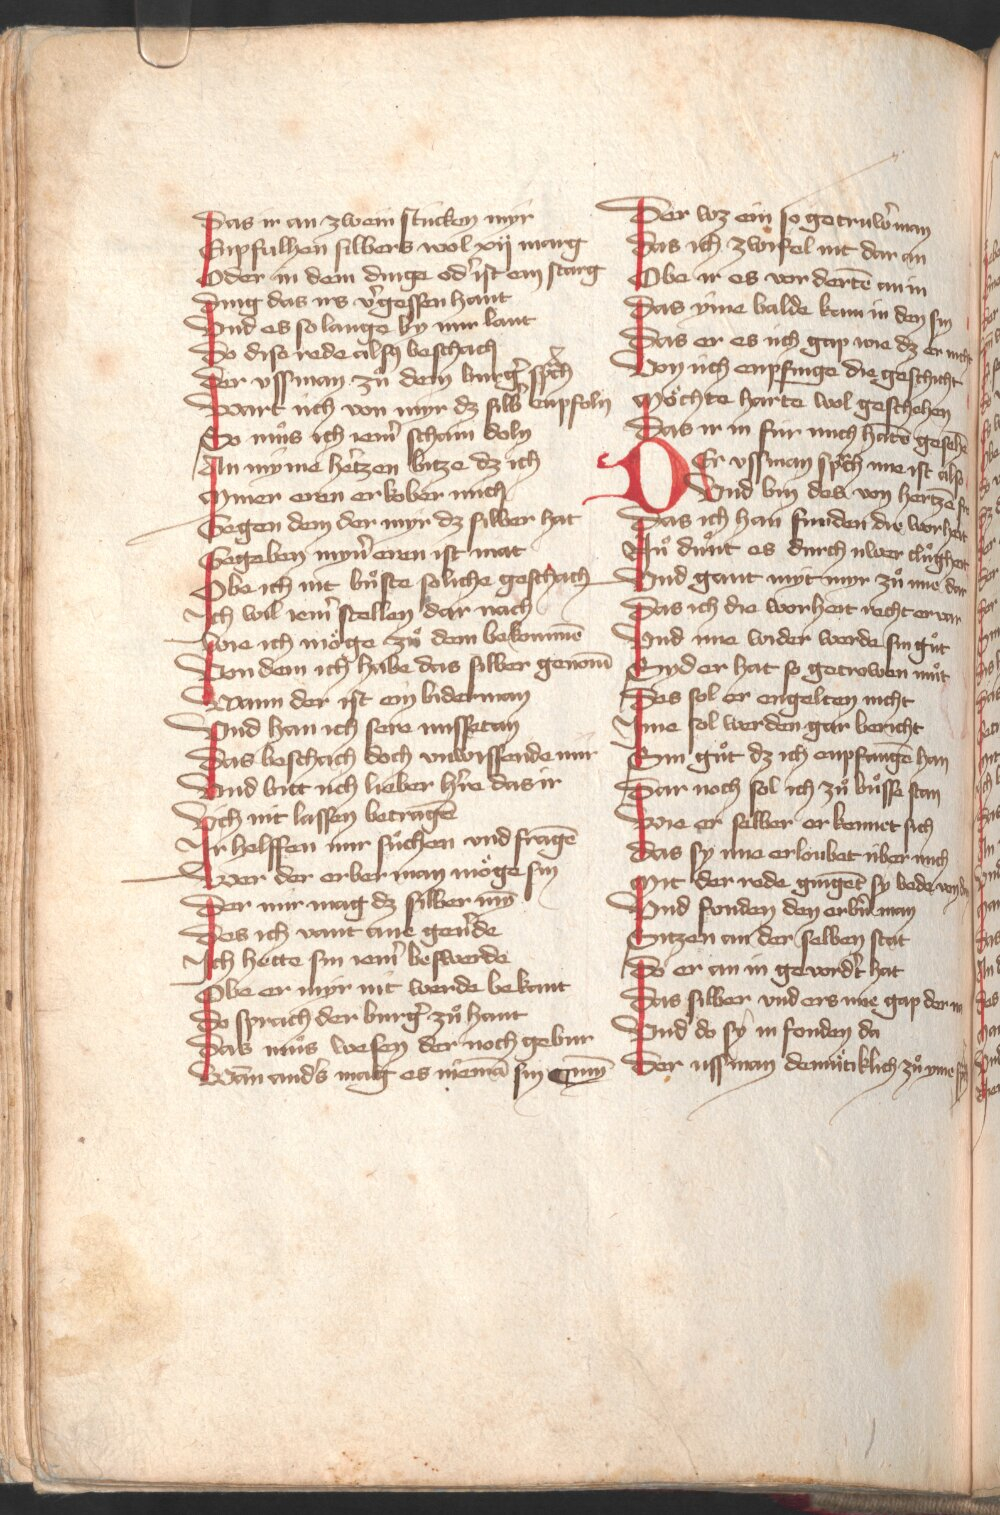 Das ir an zwein stucken myr
Enpfulhen silbers wol xij marg
Oder in dem dinge od' ist ein starg
Ding das irs v'gessen hant
Vnd es so lange by mir lant
Do dise rede alsus beschach
Der vssman zů dem burg' sp͛ch
Wart üch von myr dz silb' enpfoln
So můs ich iem' scham doln
An myme hertzen bitze dz ich
Myner eren erkober mich
Gegen dem der myr dz silber hat
Gegeben myn' eren ist mat
Obe ich nit bůste soliche geschach
Ich wil iem' stellen dar nach
Wie ich möge zů dem bekommē
Von dem ich habe das silber genom̄
Wann der ist ein biderman
Vnd han ich sere missetan
Das beschach doch vnwissende mir
Vnd bitt uch lieber h're das ir
Vch nit lassen betragē
Ir helffen mir sůchen vnd fragē
Wer der erber man möge sin
Der mir mag dz silber myn
Des ich vant ane gen'de
Ich hette sin iem' beswerde
Obe er myr nit werde bekant
Do sprach der burg' zů hant
Das můs wesen der nochgebur
Wān and's mag es niemā sin
Der wz ein so getruw' man
Das ich zwifel nit dar an
Obe ir es vordertē an in
Das yme balde kam in den sin
Das er es üch gap wie dz er nicht
Von üch enpfinge die geschicht
Möchte harte wol geschehen
Das ir in für mich hātē gesehē
DEr vssman sp͛ch mir ist also
Vnd bin des von hertzē fro
Das ich han funden die worheit
Nů důnt es durch uwer clůgheit
Vnd gant myt myr zů ime dar
Das ich die worheit recht ervar
Vnd ime wider werde sin gůt
Syd er hat so getrowen můt
Des sol er engelten nicht
Ime sol werden gar bericht
Sin gůt dz ich enpfangē han
Dar noch sol ich zů bůsse stan
Wie er selber erkennet sich
Das sy ime erloubet über mich
Mit der rede gingēt sy bede von dan
Vnd fonden den erb'n man
Sitzen an der selben stat
Do er an in gevord't hat
Das silber vnd ers ime gap der
Vnd do sy in fonden da
Der ussman demütiklich zů yme